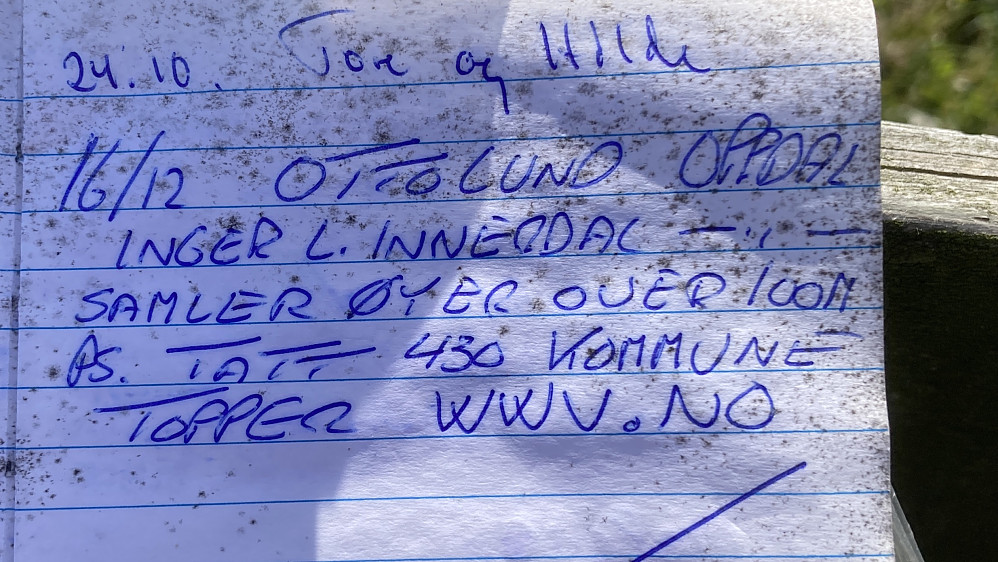 24.10. Tore og Hilde
16/12 OTTO LUND OPPDAL
INGER L. INNERDAL —„—
SAMLER ØYER OVER 100M
PS. TATT 430 KOMMUNE
TOPPER WWV.NO